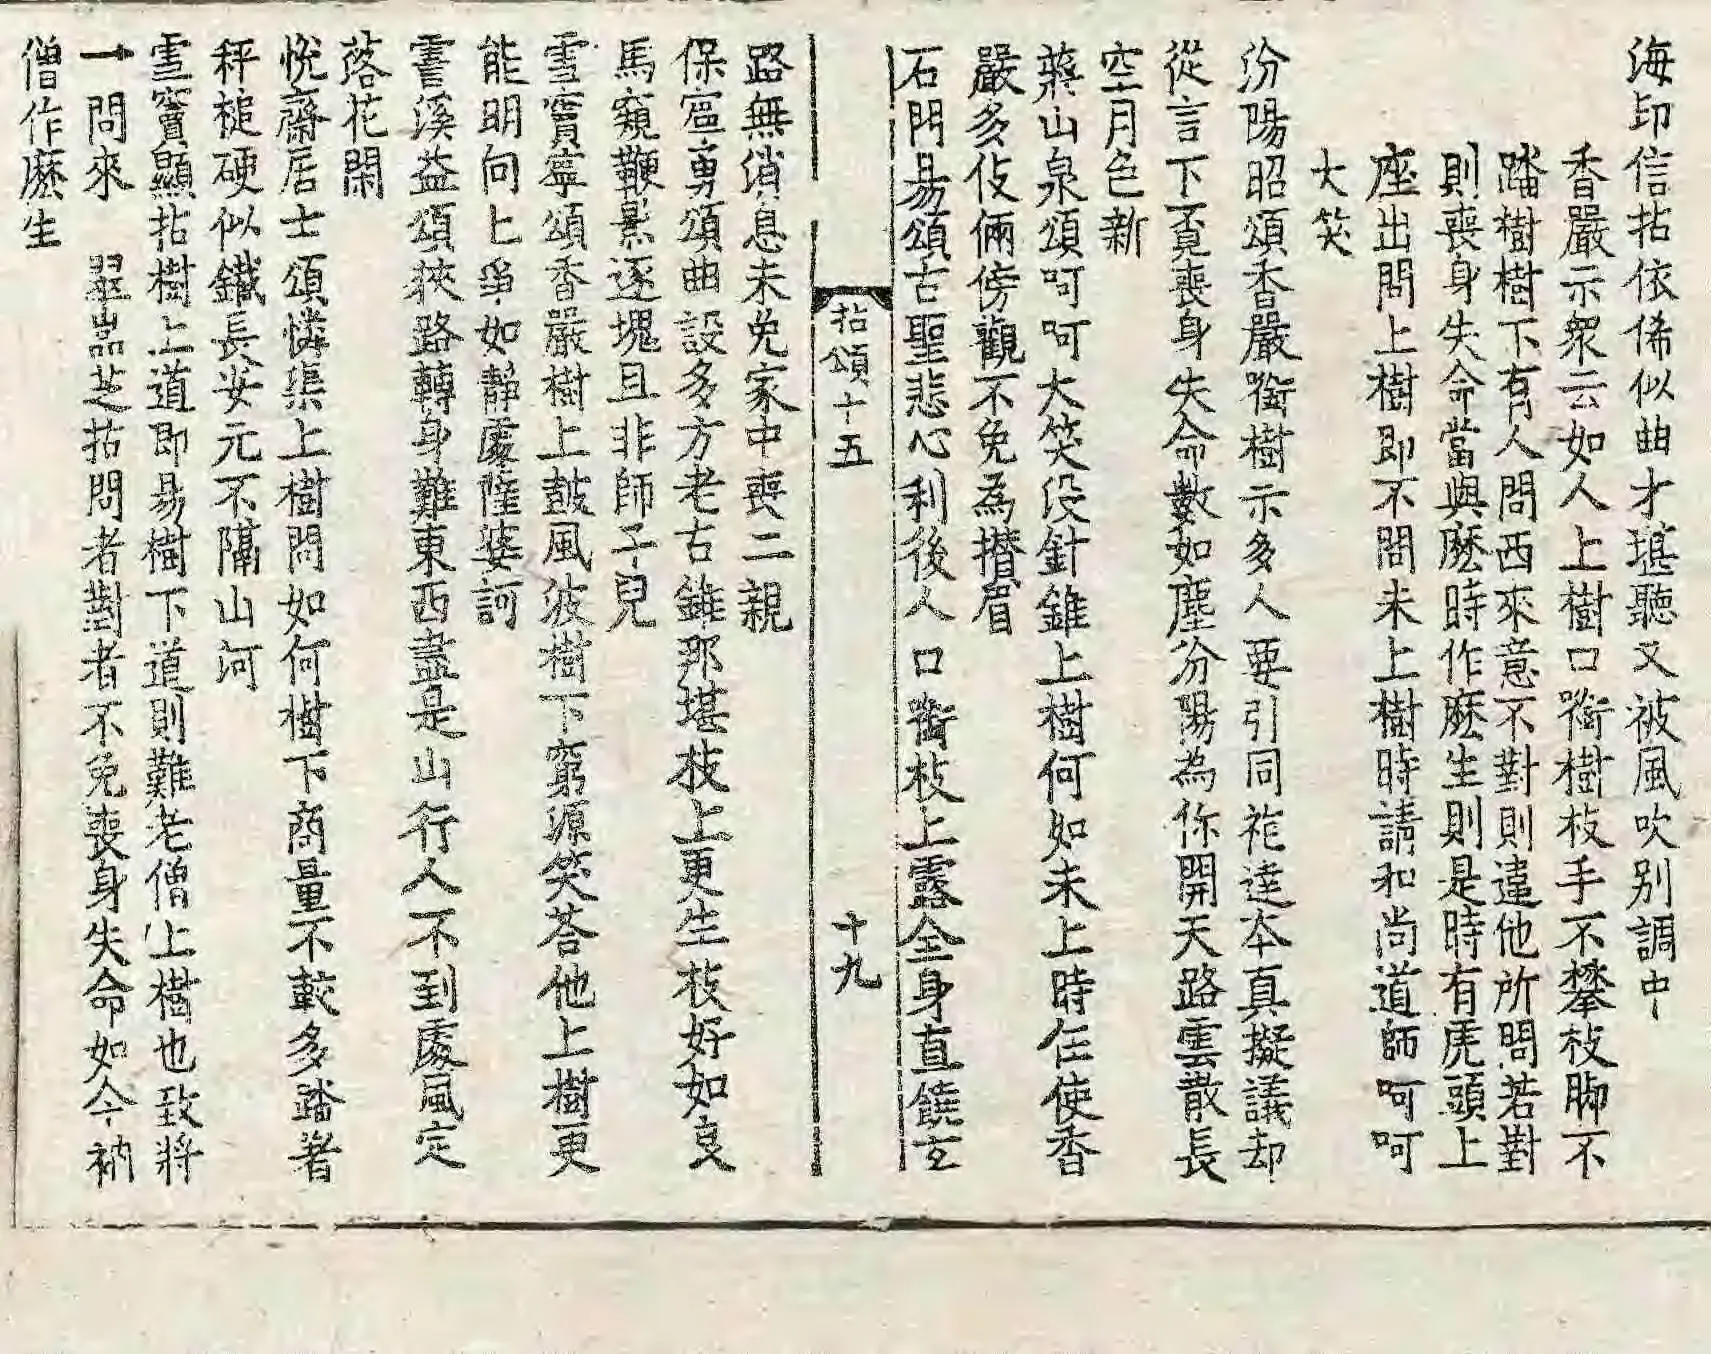 海印信拈依俙似曲才堪聽又被風吹别調中
香嚴示衆云如人上樹口㘅樹枝手不攀枝脚不
踏樹樹下有人問西來意不對則違他所問若對
則喪身失命當與麽時作麽生則是時有虎頭上
座出問上樹即不問未上樹時請和尚道師呵呵
大笑
汾陽昭頌香嚴㘅樹示多人要引同袍達本真擬議却
從言下覔喪身失命數如塵汾陽為你開天路雲散長
空月色新
蔣山泉頌呵呵大笑没針錐上樹何如未上時任使香
嚴多伎倆傍觀不免為攢眉
石門易頌古聖悲心利後人口㘅枝上露全身直饒玄
拈頌十五 十九
路無消息未免家中喪二親
保寧勇頌曲設多方老古錐那堪枝上更生枝好如良
馬窺鞭影逐塊且非師子兒
雪竇寧頌香嚴樹上鼓風波樹下窮源笑荅他上樹更
能明向上爭如靜處薩婆訶
霅溪益頌狹路轉身難東西盡是山行人不到處風定
落花閑
悅齋居士頌憐渠上樹問如何樹下商量不較多踏著
秤槌硬似鐵長安元不隔山河
雪竇顯拈樹上道即易樹下道則難老僧上樹也致將
一問來 翠嵓芝拈問者對者不免喪身失命如今衲
僧作麽生